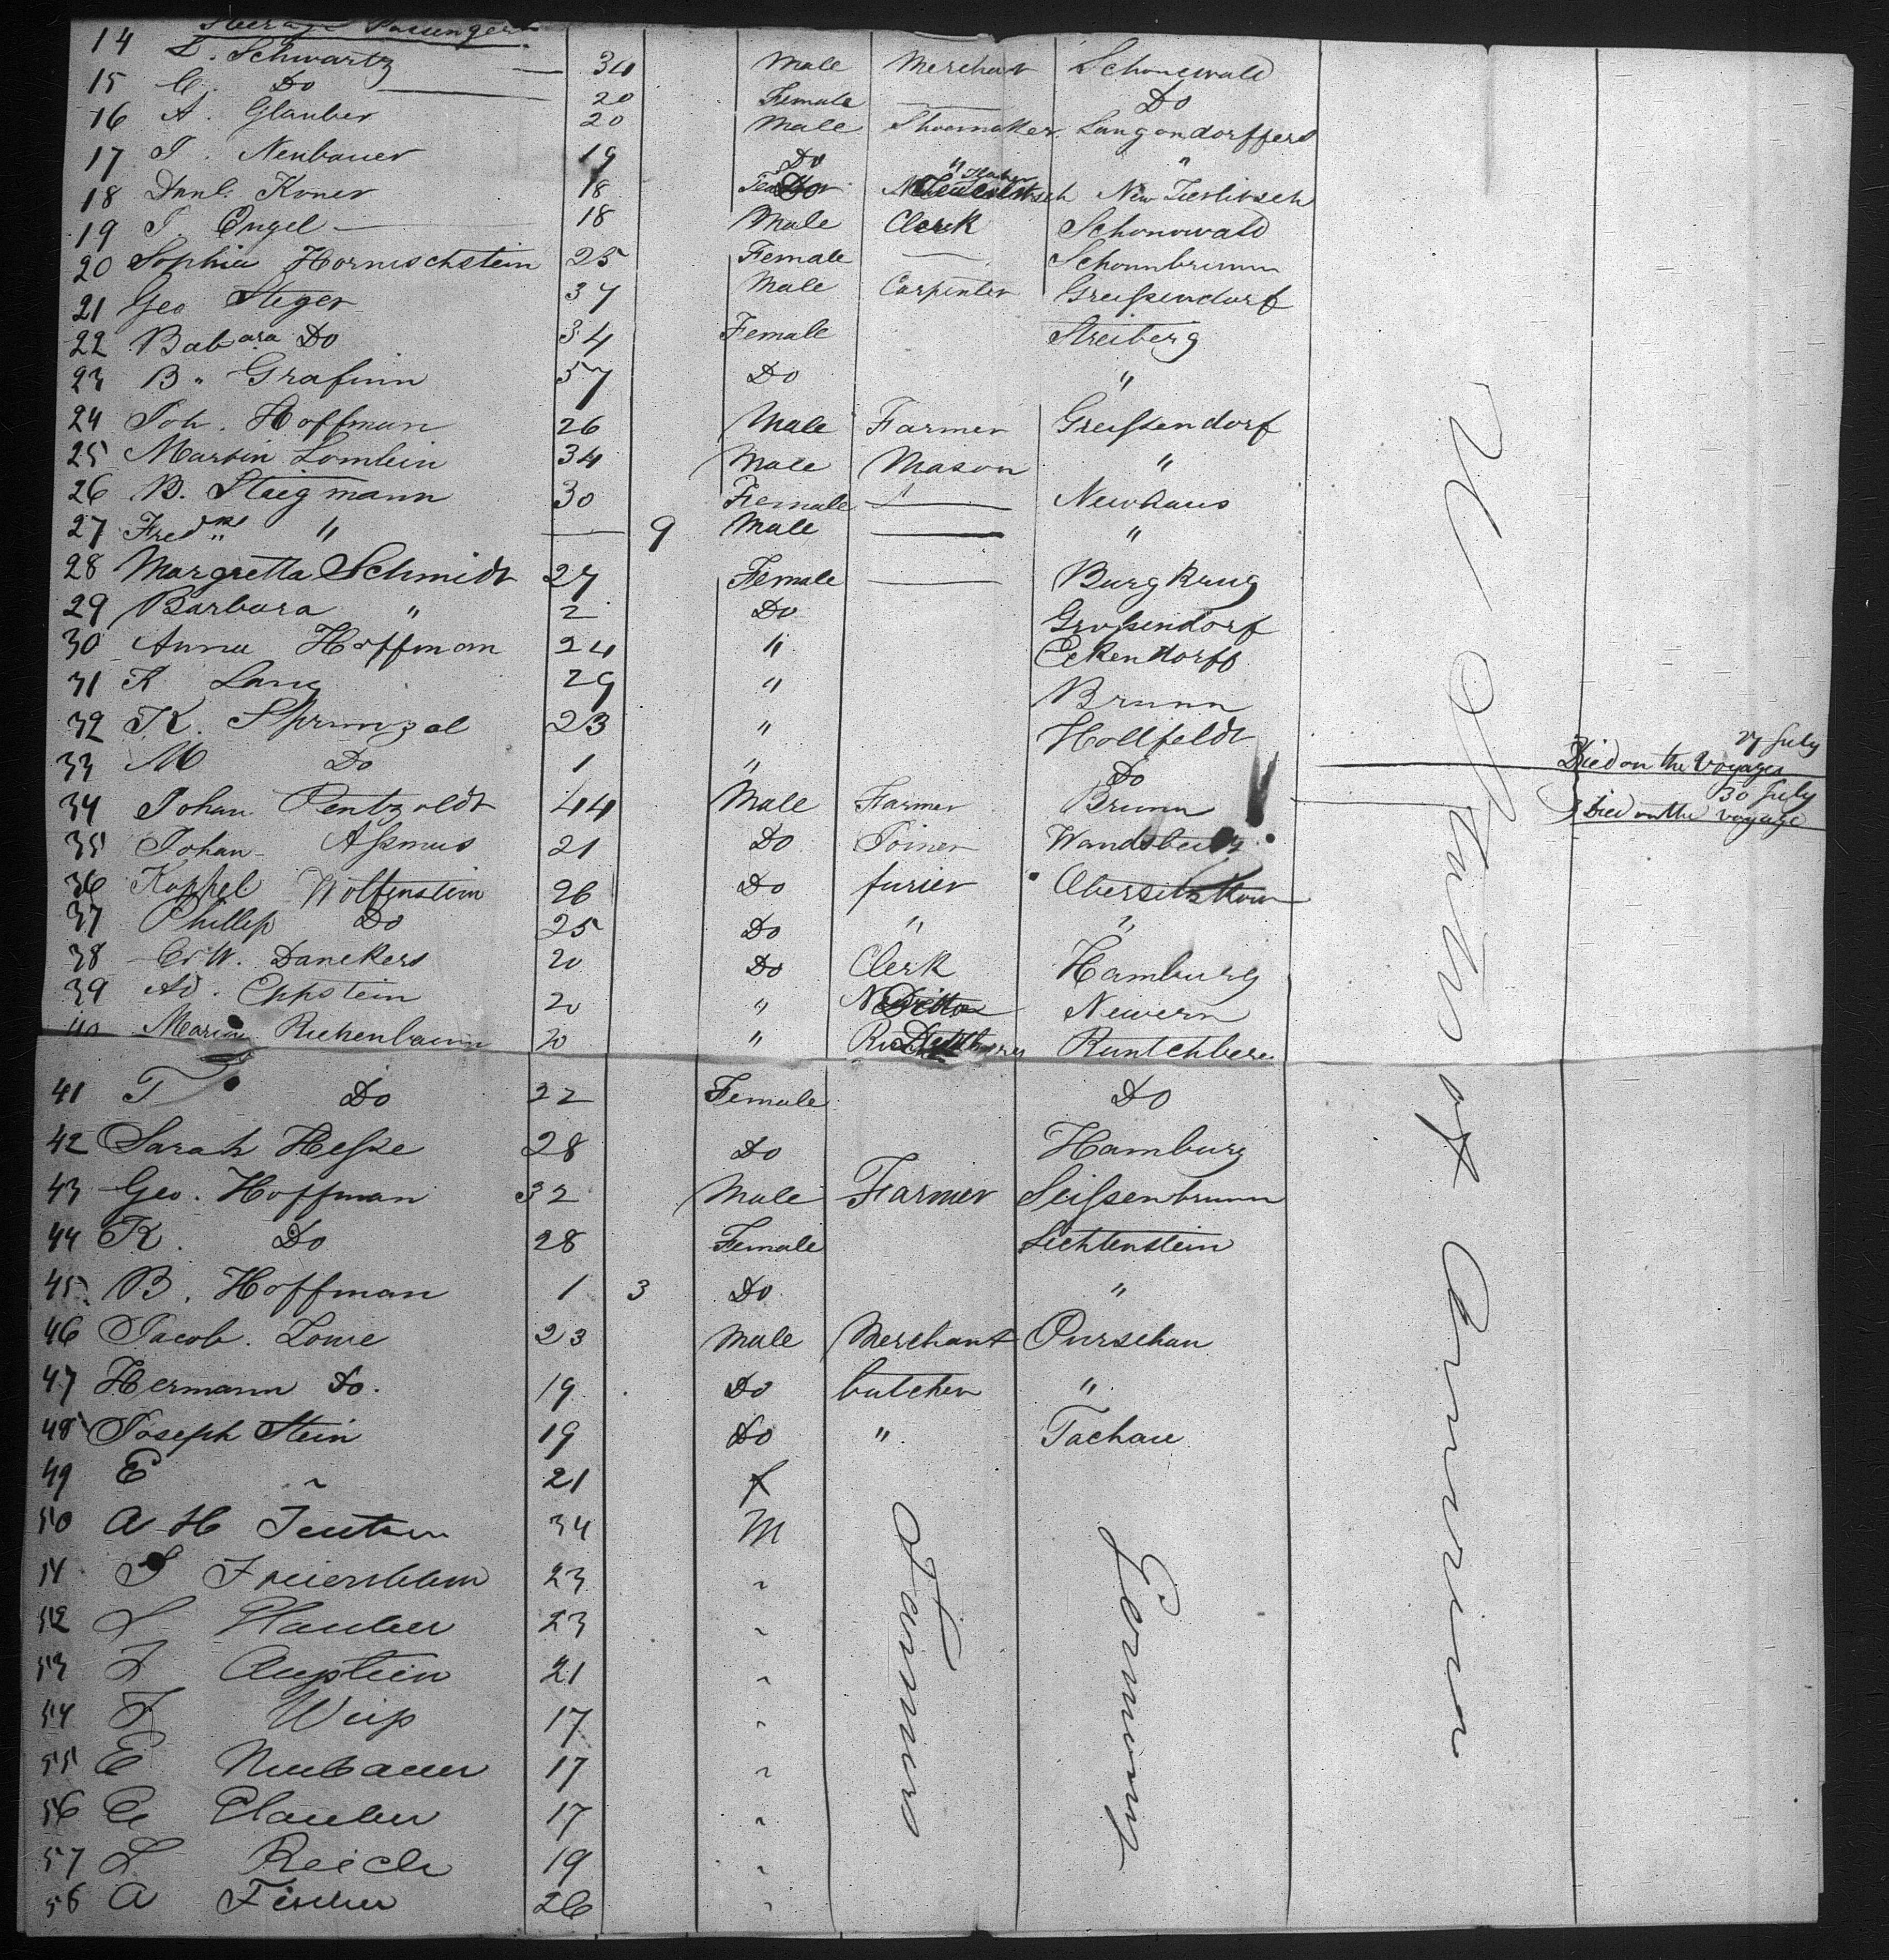 Steerage Passengers
14 L. Schwartz — 34 Male Merchant Schonewald
15 C. Do — 20 Female — Do
16 A. Glauber 20 Male Shoemaker Langendorffers
17 J. Neubauer 19 Do " "
18 Danl. Koner 18 Do New Zierlitsch
19 J. Engel — 18 Male Clerk Schonowald
20 Sophia Hornischstein 25 Female — Schonnbrunn
21 Geo Steger 37 Male Carpenter Greißendorf
22 Babara Do 34 Female Streiberg
23 B. Grafinn 57 Do "
24 Joh. Hoffman 26 Male Farmer Greißendorf
25 Martin Lomlein 34 Male Mason "
26 B. Stiegmann 30 Female — Newhaus
27 Fredk " — 9 Male — "
28 Margretta Schmidt 27 Female — Burgkrug
29 Barbara " 2 Do Großendorf
30 Anna Hoffman 24 " Eckendorff
31 K Lang 29 " Brunn
32 K. Sprunzel 23 " Hollfeldt
33 M Do 1 " Do Died on the Voyage 27 July
34 Johan Pentzoldt 44 Male Farmer Brunn Died on the voyage 30 July
35 Johan Aßmus 21 Do Joiner Wandsbeck
36 Koppel Wolfenstein 26 Do furier Obersitzkow
37 Phillip Do 25 Do " "
38 C. W. Danckers 20 Do Clerk Hamburg
39 Ad. Eppstein 20 " Ditto Newern
40 Marcus Richenbaum 20 " Ditto Runtchberg
41 T Do 22 Female Do
42 Sarah Heße 28 Do Hamburg
43 Geo. Hoffman 32 Male Farmer Seißenbrunn
44 K. Do 28 Female Lichtenstein
45 B. Hoffman 1 3 Do "
46 Jacob. Lowe 23 Male Merchant Purschau
47 Hermann Do. 19 Do butcher "
48 Joseph Stein 19 Do " Tachau
49 E " 21 f
50 A H Jentzen 34 M
51 S Freiershlem 23 "
52 L Glauber 23 "
53 L Auystein 21 "
54 F Weiß 17 "
55 E Neubauer 17 "
56 C Glauber 17 "
57 L Reich 19 "
58 A Fischer 26 "
Farmers
Germany
U States of America